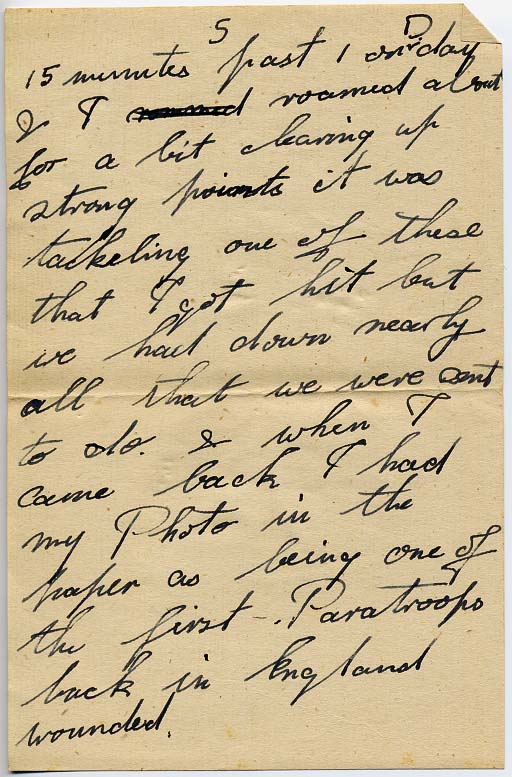 5
15 minutes past 1 on D day
& I roamed about
for a bit clearing up
strong points it was
tackeling one of these
that I got hit but
we had down nearly
all that we were sent
to do. & when I
came back I had
my Photo in the
paper as being one of
the first - Paratroops
back in England
wounded.